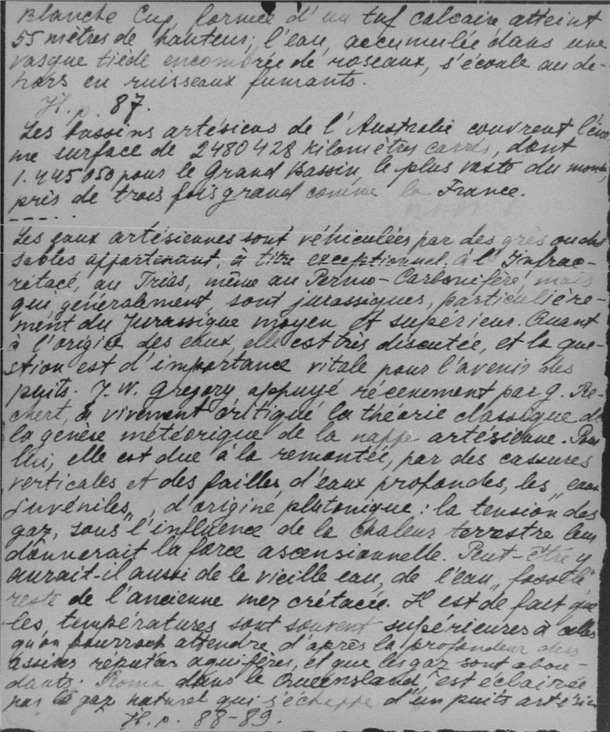 Blanche Cup, formée d'un tuf calcaire atteint
55 mètres de hauteur; l'eau, accumulée dans une
vasque tiède encombrée de roseaux, s'écoule au de-
hors en ruisseaux fumants.
H. p. 87.
Les bassins artésiens de l'Australie couvrent l'énor
me surface de 2480428 kilomètres carrés, dont
1.445050 pour le Grand Bassin, le plus vaste du monde,
près de trois fois grand comme la France.
-----
Les eaux artésiennes sont véhiculées par des grès ou des
sables appartenant, à titre exceptionnel, à l'Infrac-
rétacé, au Trias, même au Permo-Carbonifère, mais
qui généralement sont jurassiques, particulière-
ment du Jurassique moyen et supérieur. Quant
à l'origine des eaux elle est très discutée, et la que-
stion est d'importance vitale pour l'avenir des
puits. J. W. Gregory appuyé récemment par J.
chert, a vivement critiqué la théorie classique de
la genèse météorique de la nappe artésienne. Pour
lui, elle est due à la remontée, par des cassures
verticales et des failles, d'eaux profondes, les "eaux
juvéniles", d'origine plutonique: la tension des
gaz, sous l'influence de la chaleur terrestre leur
donnerait la force ascensionnelle. Peut-être y
aurait-il aussi de la vieille eau, de l'eau "fossile"
reste de l'ancienne mer crétacée. Il est de fait que
les températures sont souvent supérieures à celles
qu'on pourrait attendre d'après la profondeur des
assises réputées aquifères, et que les gaz sont abon-
dants: Roma dans le Queensland est éclairée
par le gaz naturel qui s'échappe d'un puits artésien
H. p. 88-89.